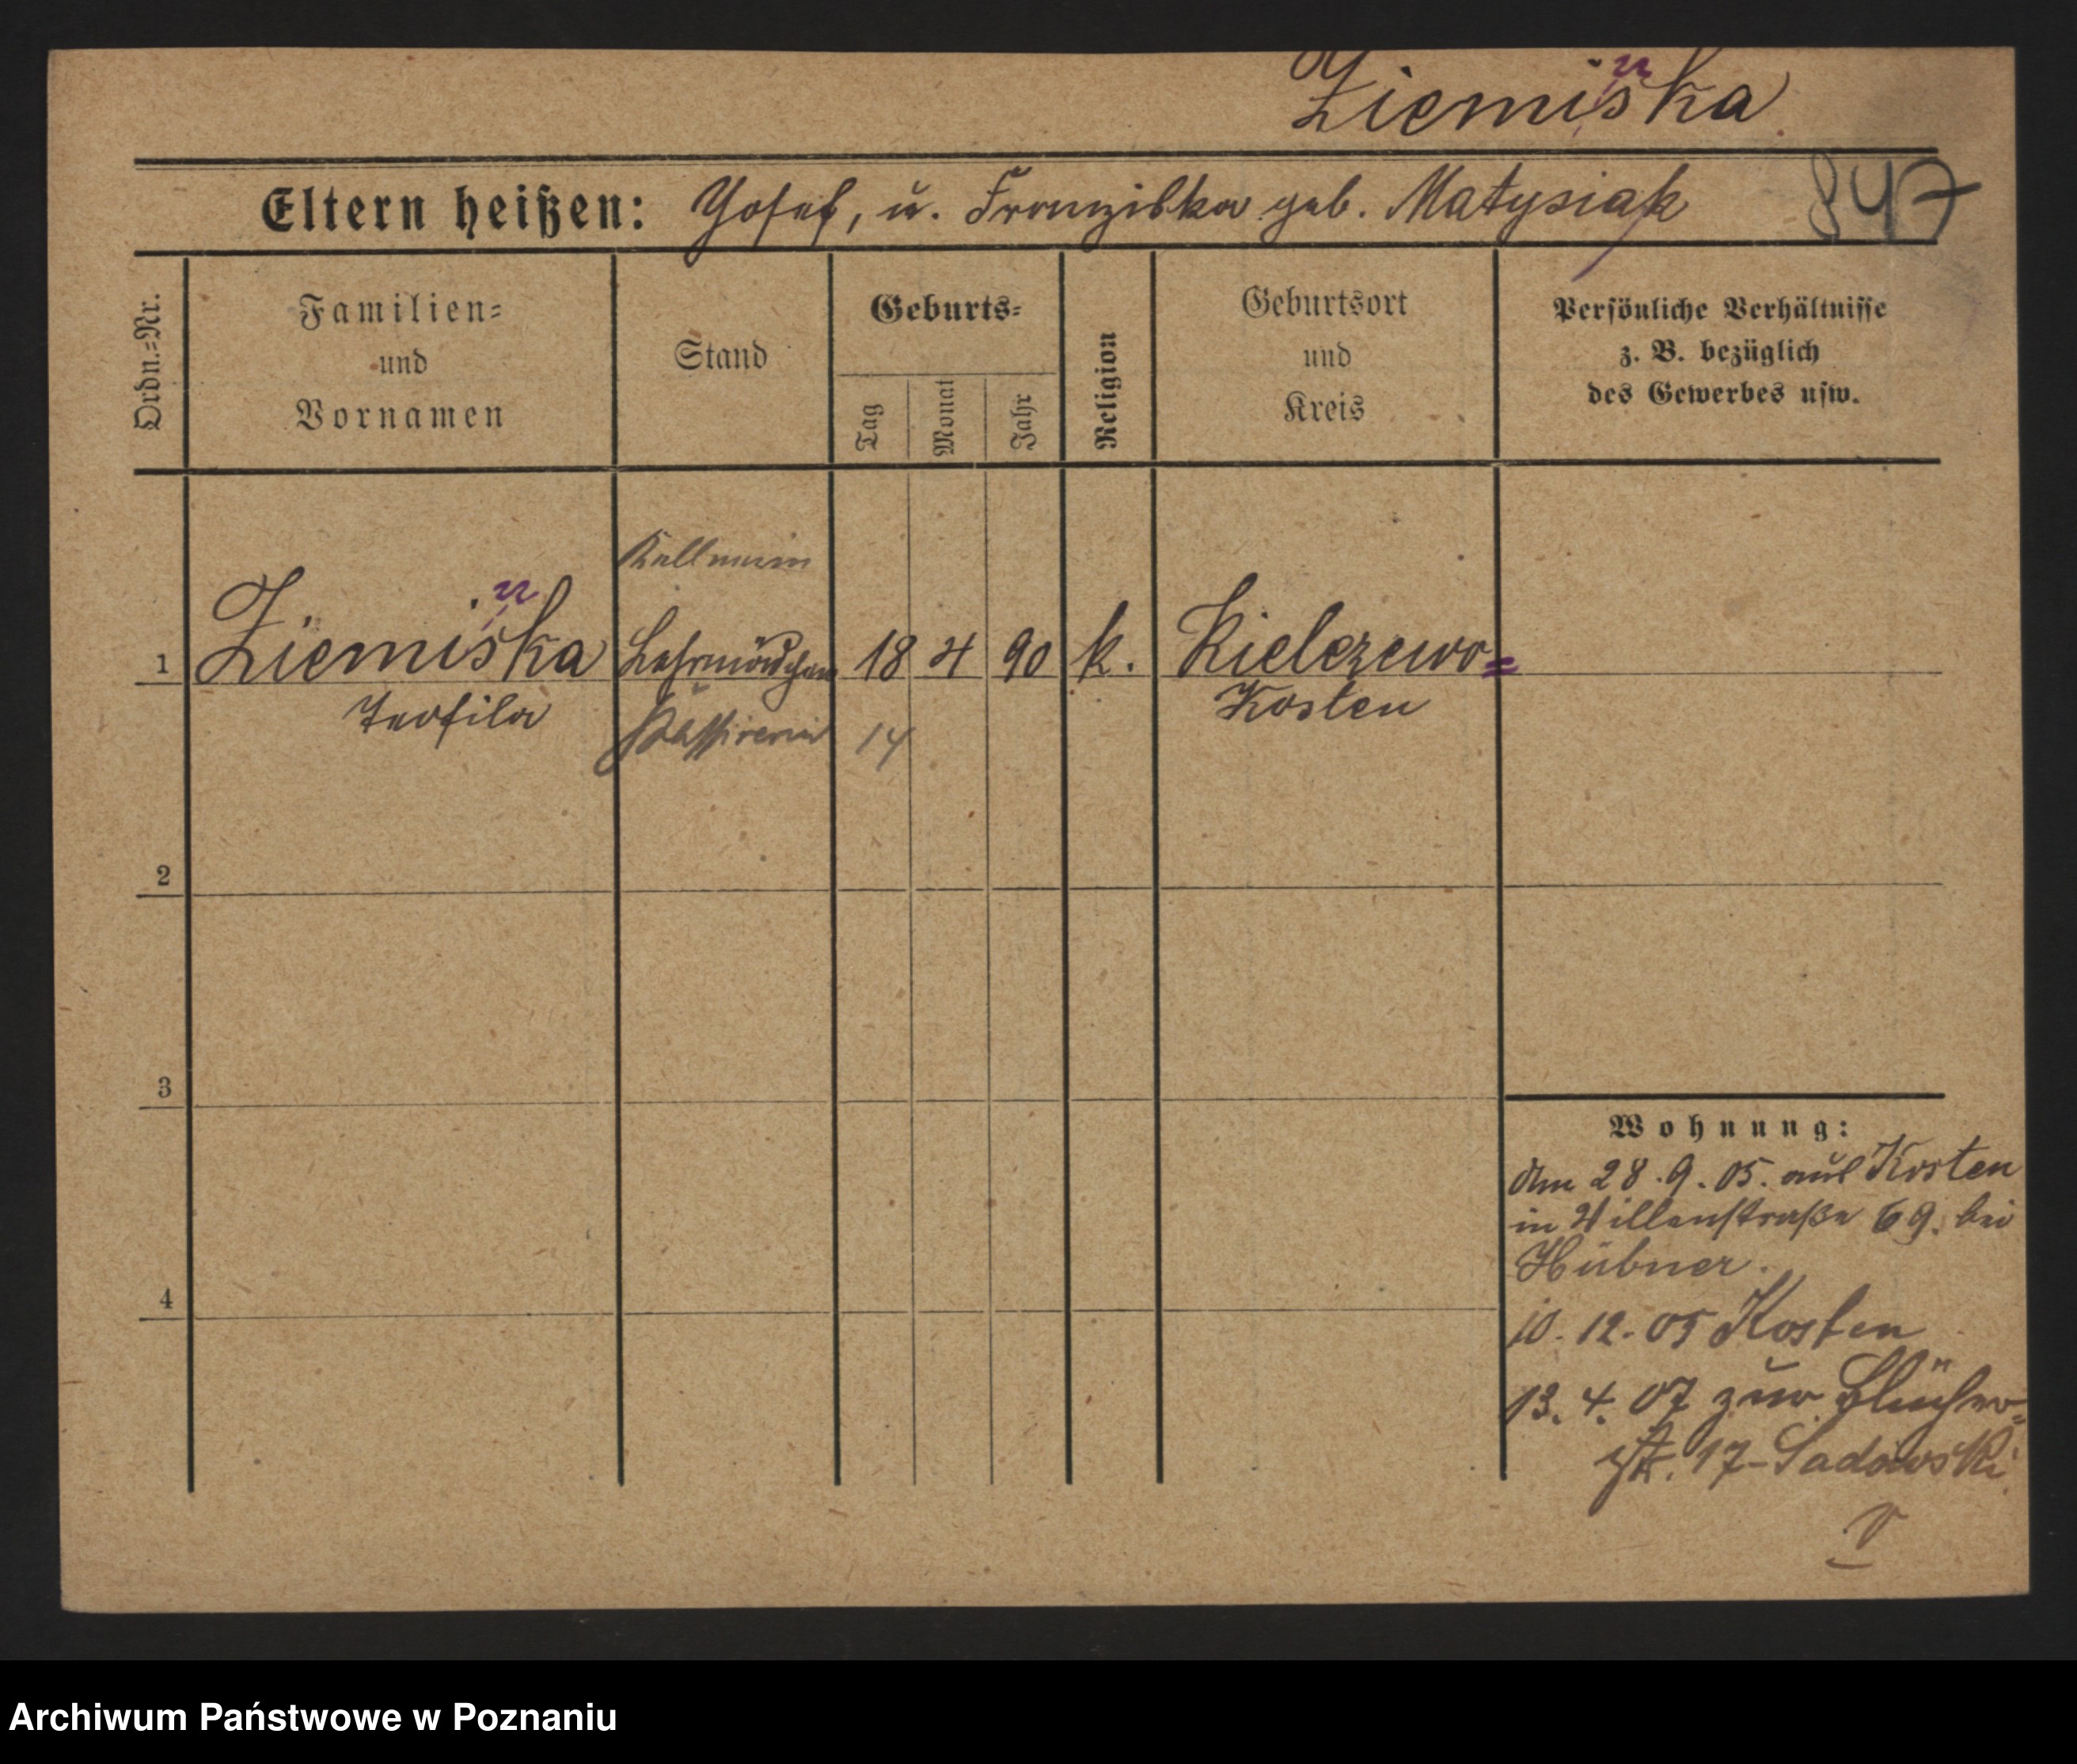 Ziemińska
Eltern heißen: Josef, u. Franziska geb. Matysiak 847
Ordn.=Nr.
Familien=
und
Vornamen
Stand
Geburts=
Tag
Monat
Jahr
Religion
Geburtsort
und
Kreis
Persönliche Verhältnisse
z. B. bezüglich
des Gewerbes usw.
Kellnerin
1 Ziemińska Lehrmädchen 18 4 90 k. Kielczewo=
Teofila Kosten
Kassirerin 14
2
3
4
Wohnung:
Am 28.9.05. aus Kosten
in 69. bei
Hübner.
10.12.05 Kosten
13.4.07 zur
str. 17-Sadowski
Archiwum Państwowe w Poznaniu